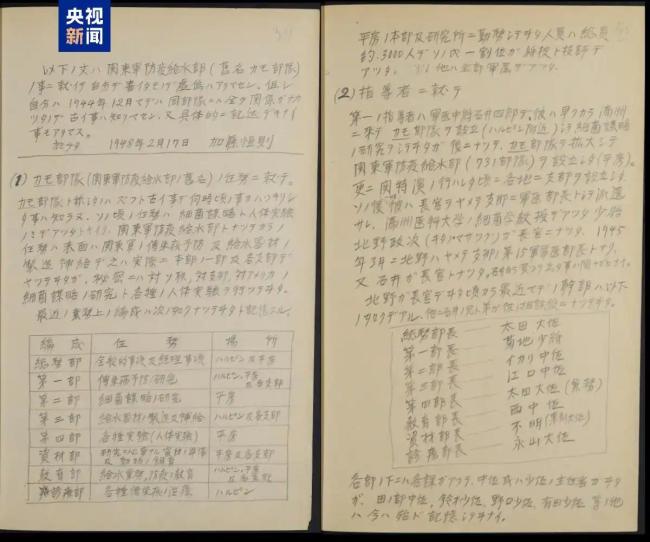 央视
新闻
以下ノ文ハ関東軍防疫給水部(旧名カモ部隊)
ノ事ニ就イテ自分デ書イタモノデ虚偽ハアリマセン。但シ
自分ハ1944年12月マデハ同部隊ニハ全ク関係ガナカ
ツタノデ古イ事ハ知リマセン。又具体的ニ記述デキナイ
事モアリマス。
1948年2月17日 加藤恒則
(1) カモ部隊(関東軍防疫給水部ノ旧名)ノ任務ニ就テ。
カモ部隊ト称シタノハズツト古イ事デ何時頃ノ事カハツキリシ
タ事ハ知ラヌ。ソノ頃ノ任務ハ細菌謀略ト人体実験
ノミデアツタトイフ。関東軍防疫給水部トナツテカラノ
任務ハ表面ハ関東軍ノ傳染病予防及給水器材ノ
製造補給デ之ハ実際ニ本部ノ一部ト各支部デ
ヤツテヰタガ、秘密ニハ対ソ聯、対支那、対アメリカノ
細菌謀略ノ研究ト各種ノ人体実験ヲ行ツテヰタ。
最近ノ業務上ノ編成ハ次ノ如クナツテヰタト記憶スル。
編成 任務 場所
総務部 全般的事項及経理事項 ハルビン及平房
第一部 傳染病予防ノ研究 ハルビン、平房及各支部
第二部 細菌謀略ノ研究 平房
第三部 給水器材ノ製造及補給 ハルビン及各支部
第四部 各種実験(人体実験) 平房
資材部 平房及各支部
教育部 給水業務、防疫ノ教育 ハルビン、平房
診療部 各種傳染病ノ治療 ハルビン
平房ノ本部及研究所ニ勤務シテヰタ人員ハ総員
約3000人デソノ内一割位ガ将校ト技師デ
アツタ。ソノ他ハ全部軍属デアツタ。
(2) 指導者ニ就テ
第一ノ指導者ハ軍医中将石井四郎デ、彼ハ早クカラ満洲
ニ来テカモ部隊ヲ設立(ハルビン附近)シテ細菌謀略
ノ研究ヲシテヰタガ後ニナツテ、カモ部隊ヲ拡大シテ
関東軍防疫給水部(731部隊)ヲ設立シタ(平房)。
更ニ関特演ノ行ハレタ頃ニ各地ニ支部ヲ設立シタ。
ソノ後彼ハ長官ヲヤメテ支那ニ軍医部長トシテ派遣
サレ、満洲医科大学ノ細菌学教授デアツタ少将
北野政次(キタノマサツグ)ガ長官ニナツタ。1945
年3月ニ北野ハヤメテ支那ノ第15軍軍医部長トナリ、
又石井ガ長官トナツタ。
北野ガ長官デヰタ頃カラ最近マデノ幹部ハ以下
ノ如クデアル。
総務部長 太田大佐
第一部長 菊地少将
第二部長 イカリ中佐
第三部長 江口中佐
第四部長 太田大佐(兼務)
教育部長 西中佐
資材部長 不明
診療部長 永山大佐
各部ノ下ニハ各課ガアツテ、中佐或ハ少佐ノ主任者ガヰタ
ガ、田中中佐、鈴木少佐、野口少佐、有田少佐等ノ他
ハ今ハ殆ド記憶シテヰナイ。